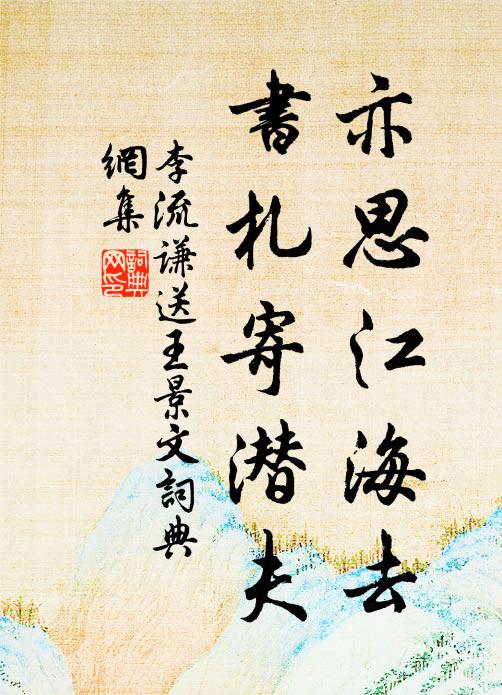 亦思江海去
書札寄潜夫
李流谦送王景文詞典
網集
詞典
网印